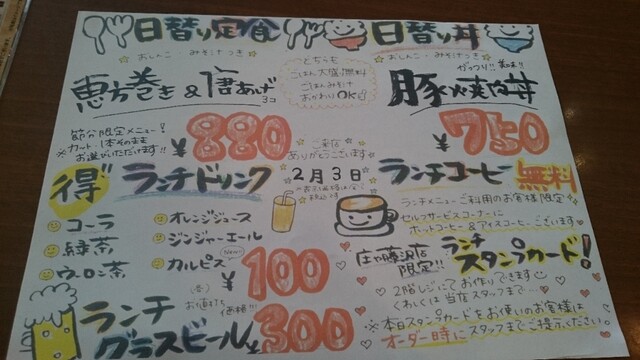 日替り定食
おしんこ・みそ汁つき
恵方巻き&唐あげ
3コ
節分限定メニュー!
※カット・1本そのまま
お選びいただけます!!
¥880
どちらも
ごはん大盛り無料
ごはんみそ汁
おかわりOK!
日替り丼
おしんこ・みそ汁つき
がっつり!!美味!!
豚焼肉丼
¥750
ご来店
ありがとうございます
2月3日
得
ランチドリンク
コーラ
緑茶
ウーロン茶
オレンジジュース
ジンジャーエール
カルピス
New!!
¥100
ランチコーヒー無料
ランチメニューご利用のお客様限定
セルフサービスコーナーに
ホットコーヒー&アイスコーヒーございます
庄や藤沢店
限定!!
ランチ
スタンプカード!
2階レジにてお作りできます
くわしくは当店スタッフまで…
※本日スタンプカードをお使いのお客様は
オーダー時にスタッフまでご提示ください。
お値打ち
価格!!!
ランチ
グラスビール¥300